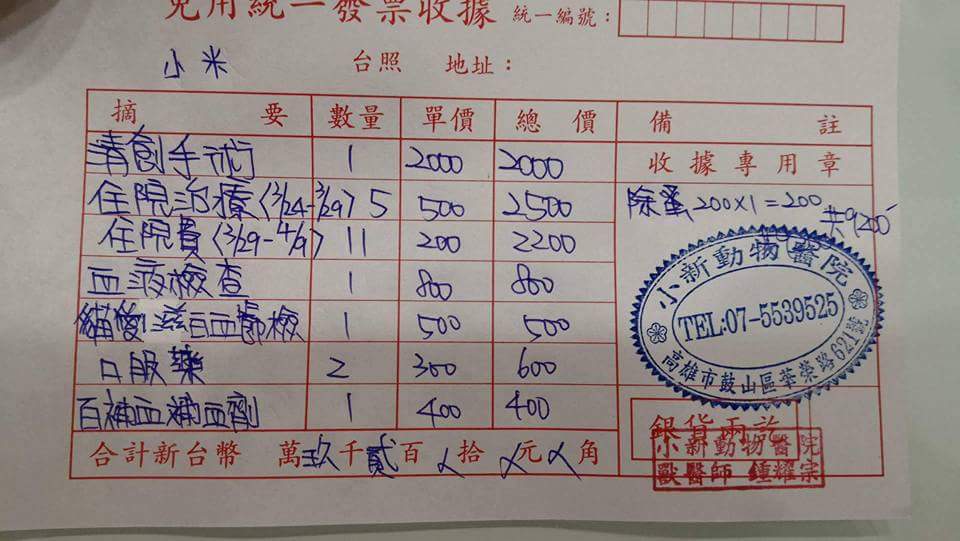 免用統一發票收據 統一編號：
小米 台照 地址：
摘要 數量 單價 總價 備註
清創手術 1 2000 2000 收據專用章
住院治療(3/24-3/29) 5 500 2500 除蚤200×1=200
共9200
住院費(3/29-4/9) 11 200 2200
血液檢查 1 800 800
貓愛滋白血節檢 1 500 500
口服藥 2 300 600
百補血補血劑 1 400 400
合計新台幣 萬玖千貳百 拾 元 角
小新動物醫院
TEL:07-5539525
高雄市鼓山區華榮路621號
銀貨兩訖
小新動物醫院
獸醫師 鍾耀宗